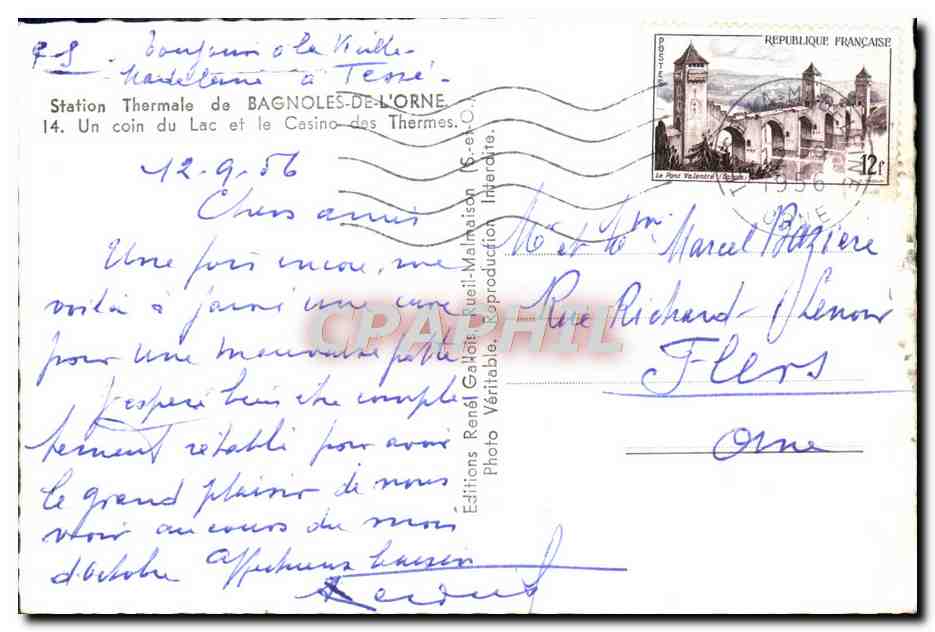 PS Toujours à la Vieille
Madeleine à Tessé -
Station Thermale de BAGNOLES-DE-L'ORNE
14. Un coin du Lac et le Casino des Thermes.
12-9-56
Chers amis
Une fois encore, me
voilà à faire une cure
pour une mauvaise patte
J'espère bien être complè
tement rétabli pour avoir
le grand plaisir de nous
voir au cours du mois
d'octobre Affectueux baisers
Éditions René Gallois, Rueil-Malmaison (S.-et-O.)
Photo Véritable. Reproduction Interdite.
POSTES
REPUBLIQUE FRANÇAISE
Le Pont Valentré (Cahors)
12f
1956
ORNE
Mr et Mme Marcel Bazière
Rue Richard-Lenoir
Flers
Orne
CPAPHIL